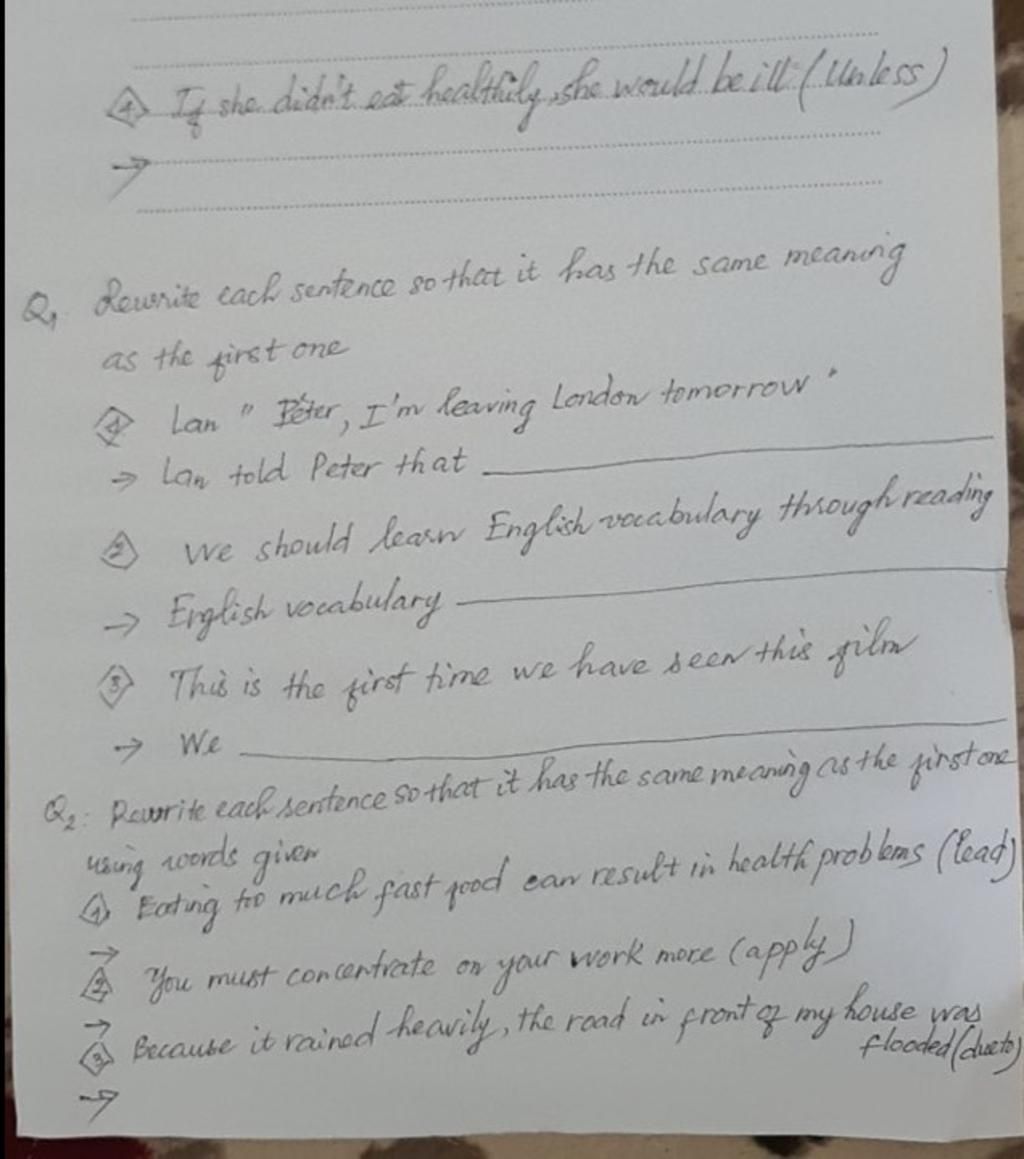 4 If she didn't eat healthily, she would be ill (Unless)
→
Q1 Rewrite each sentence so that it has the same meaning
as the first one
1 Lan " Peter, I'm leaving London tomorrow "
→ Lan told Peter that
2 We should learn English vocabulary through reading
→ English vocabulary
3 This is the first time we have seen this film
→ We
Q2: Rewrite each sentence so that it has the same meaning as the first one
using words given
1 Eating too much fast food can result in health problems (lead)
→
2 You must concentrate on your work more (apply)
→
3 Because it rained heavily, the road in front of my house was
flooded (due to)
→